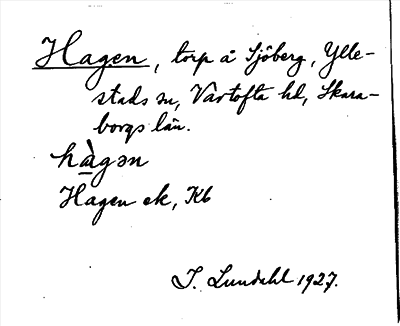 Hagen, torp å Sjöberg, Ylle-
stads sn, Vartofta hd, Skara-
borgs län.
hàgən
Hagen ek, Kb
I. Lundahl 1927.